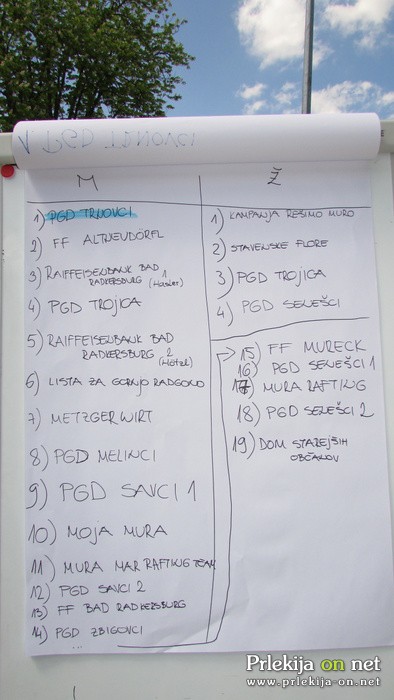 M
1) PGD TRNOVCI
2) FF ALTNEUDÖRFL
3) RAIFFEISENBANK BAD
RADKERSBURG 1 (Hasler)
4) PGD TROJICA
5) RAIFFEISENBANK BAD
RADKERSBURG 2
(Hötzl)
6) LISTA ZA GORNJO RADGONO
7) METZGERWIRT
8) PGD MELINCI
9) PGD SAVCI 1
10) MOJA MURA
11) MURA MAR RAFTING TEAM
12) PGD SAVCI 2
13) FF BAD RADKERSBURG
14) PGD ZBIGOVCI
...
15) FF MURECK
16) PGD SENEŠCI 1
17) MURA RAFTING
18) PGD SENEŠCI 2
19) DOM STAREJŠIH
OBČANOV
Ž
1) KAMPANJA REŠIMO MURO
2) STAVENSKE FLORE
3) PGD TROJICA
4) PGD SENEŠCI
Prlekija on net
www.prlekija-on.net